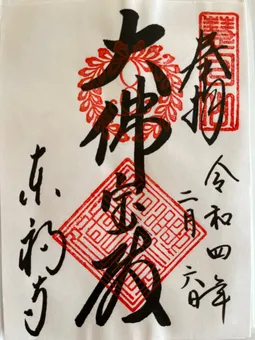 奉拝
令和四年
二月六日
大佛宝殿
東福寺